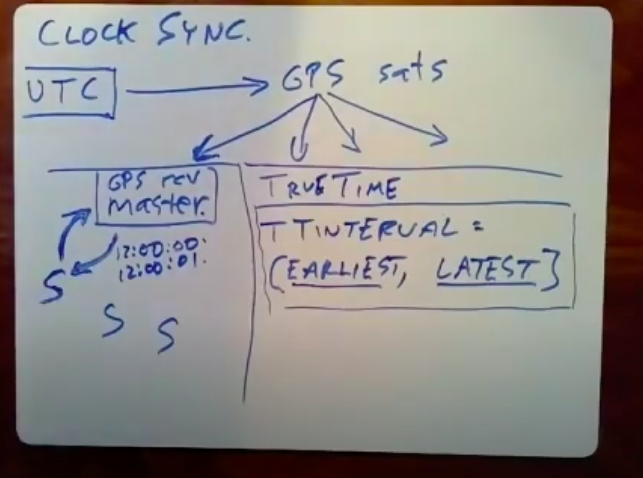 CLOCK SYNC.
UTC
GPS sats
GPS rcv
master.
12:00:00.
12:00:01.
S
S
S
TRUETIME
TTINTERVAL =
[EARLIEST, LATEST]